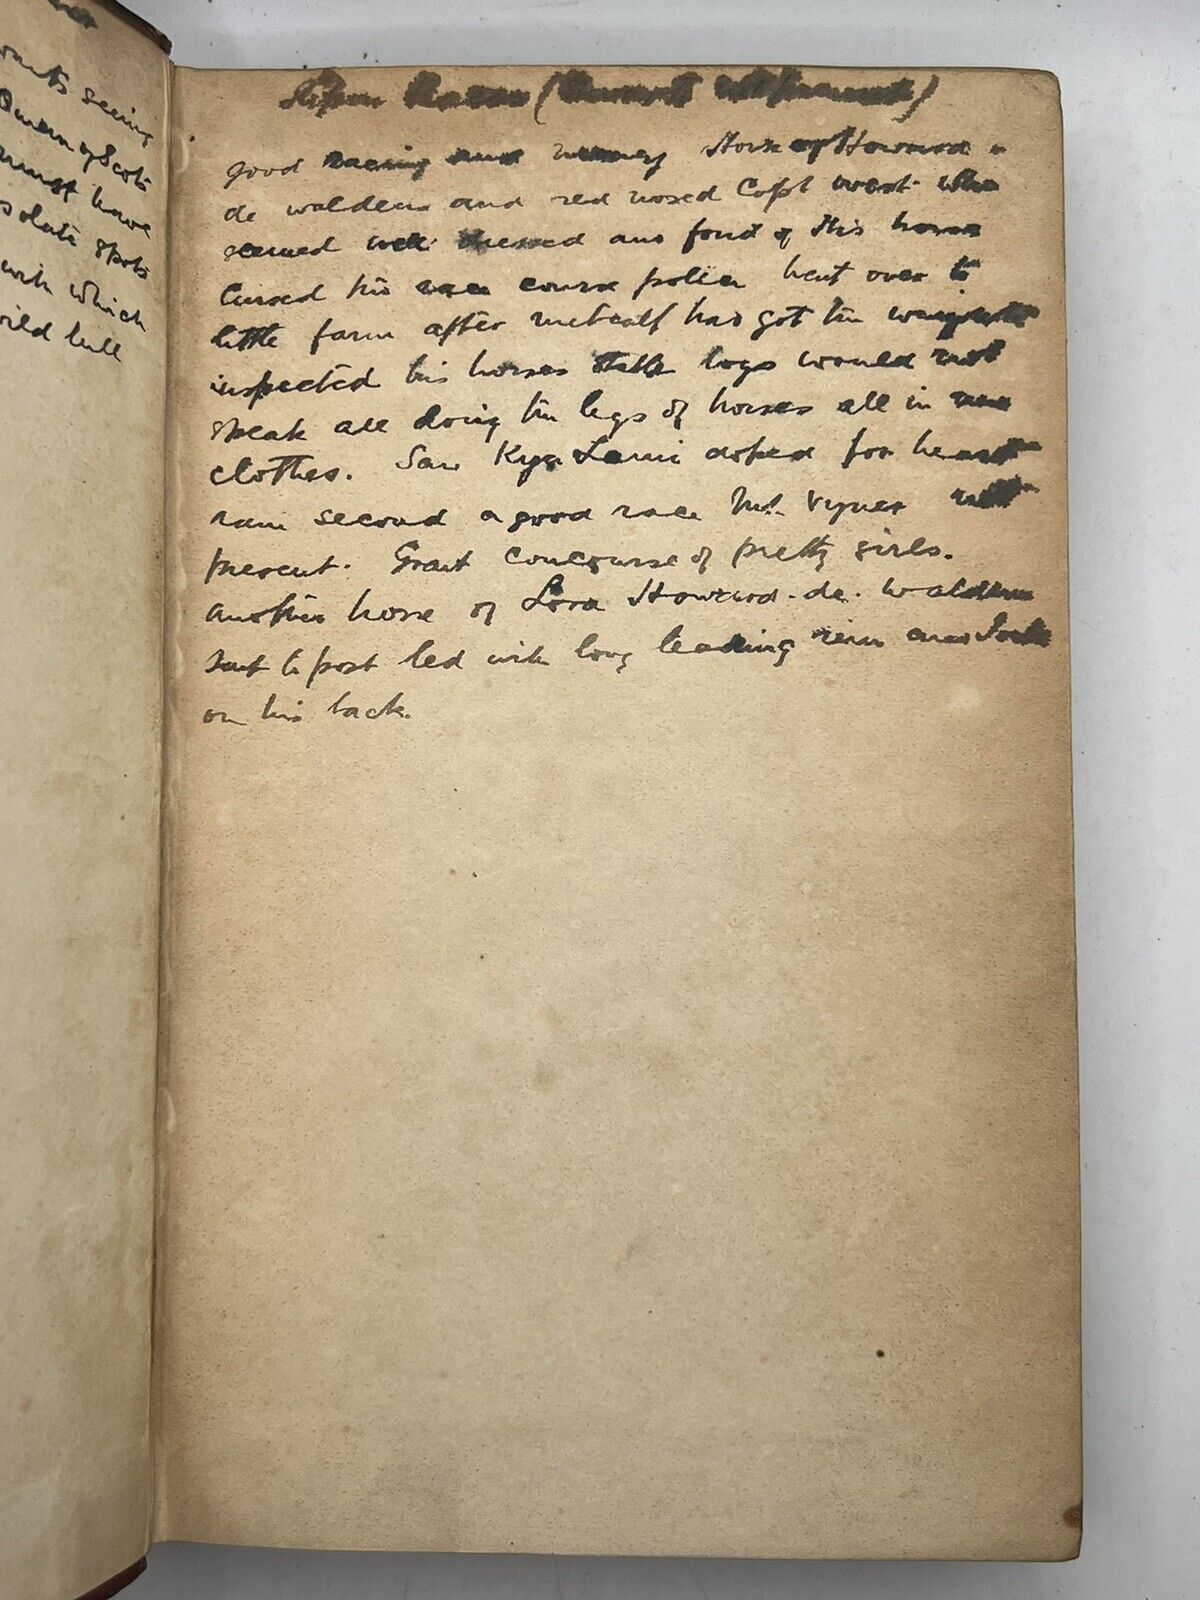 wants seeing
Queen of Scots
must have
spots
with which
wild bull
Ripon Races (
good racing and Horse of Howard
de waldens and red nosed Capt west who
seemed well dressed and fond of His horses
Cursed the race course police went over to
little farm after metcalf had got the weights
inspected his horses stable boys would not
speak all doing the legs of horses all in
clothes. Saw doped for heart
ran second a good race Mr. Vyner not
present. Great concourse of pretty girls.
another horse of Lord Howard. de. Walden
sent to post led with long leading rein and Jock
on his back.